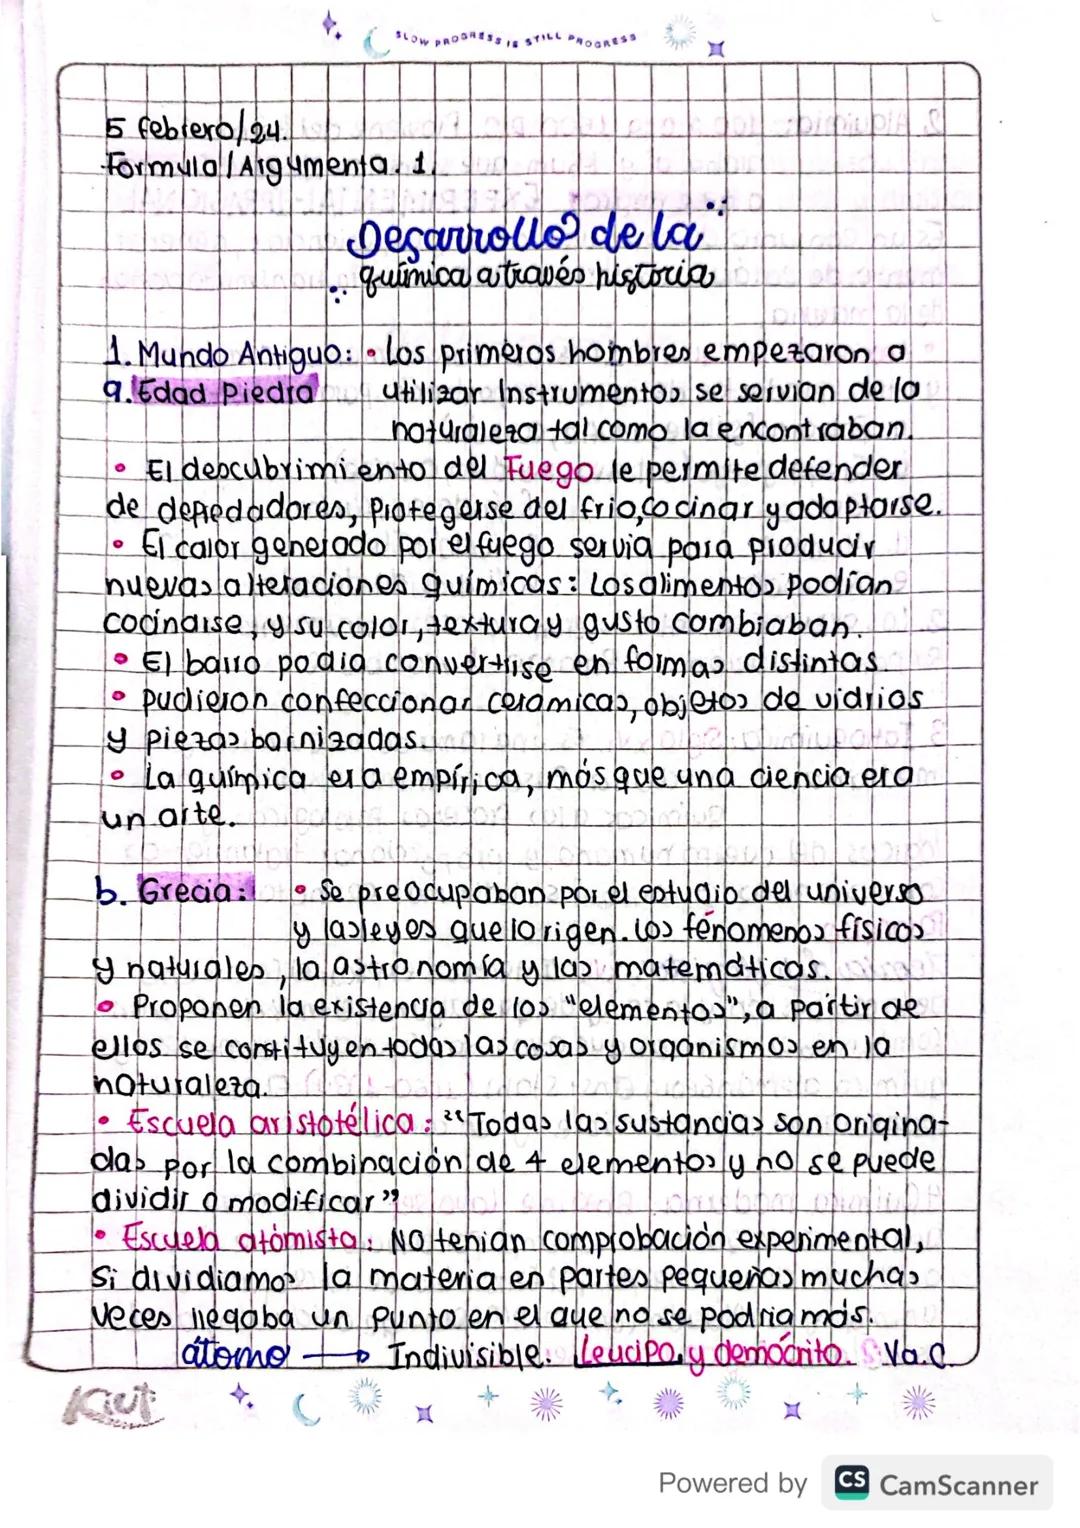 SLOW PROGRESS IS STILL PROGRESS
5 febrero/24.
Formula/Argumenta. 1.
Desarrollo de la
química a través historia
1. Mundo Antiguo: • Los primeros hombres empezaron a
a. Edad Piedra utilizar Instrumentos se servian de la
naturaleza tal como la encontraban.
• El descubrimiento del Fuego le permite defender
de depredadores, Protegerse del frio, cocinar y adaptarse.
• El calor generado por el fuego servia para producir
nuevas alteraciones químicas: Los alimentos podían
cocinarse, y su color, textura y gusto cambiaban.
• El barro podia convertirse en formas distintas
• pudieron confeccionar ceramicas, objetos de vidrios
y piezas barnizadas.
• La química era empírica, más que una ciencia era
un arte.
b. Grecia: • Se preocupaban por el estudio del universo
y las leyes que lo rigen. Los fénomenos físicos
y naturales, la astronomía y las matemáticas.
• Proponen la existencia de los "elementos", a partir de
ellos se constituyen todas las cosas y organismos en la
naturaleza.
• Escuela aristotélica: "Todas las sustancias son origina-
das por la combinación de 4 elementos y no se puede
dividir o modificar"
• Escuela atómista: NO tenian comprobación experimental,
Si dividiamos la materia en partes pequeñas muchas
veces llegaba un punto en el que no se podria más.
átomo → Indivisible: Leucipo y demócrito. S. Va.C
Kiut
Powered by CS CamScanner